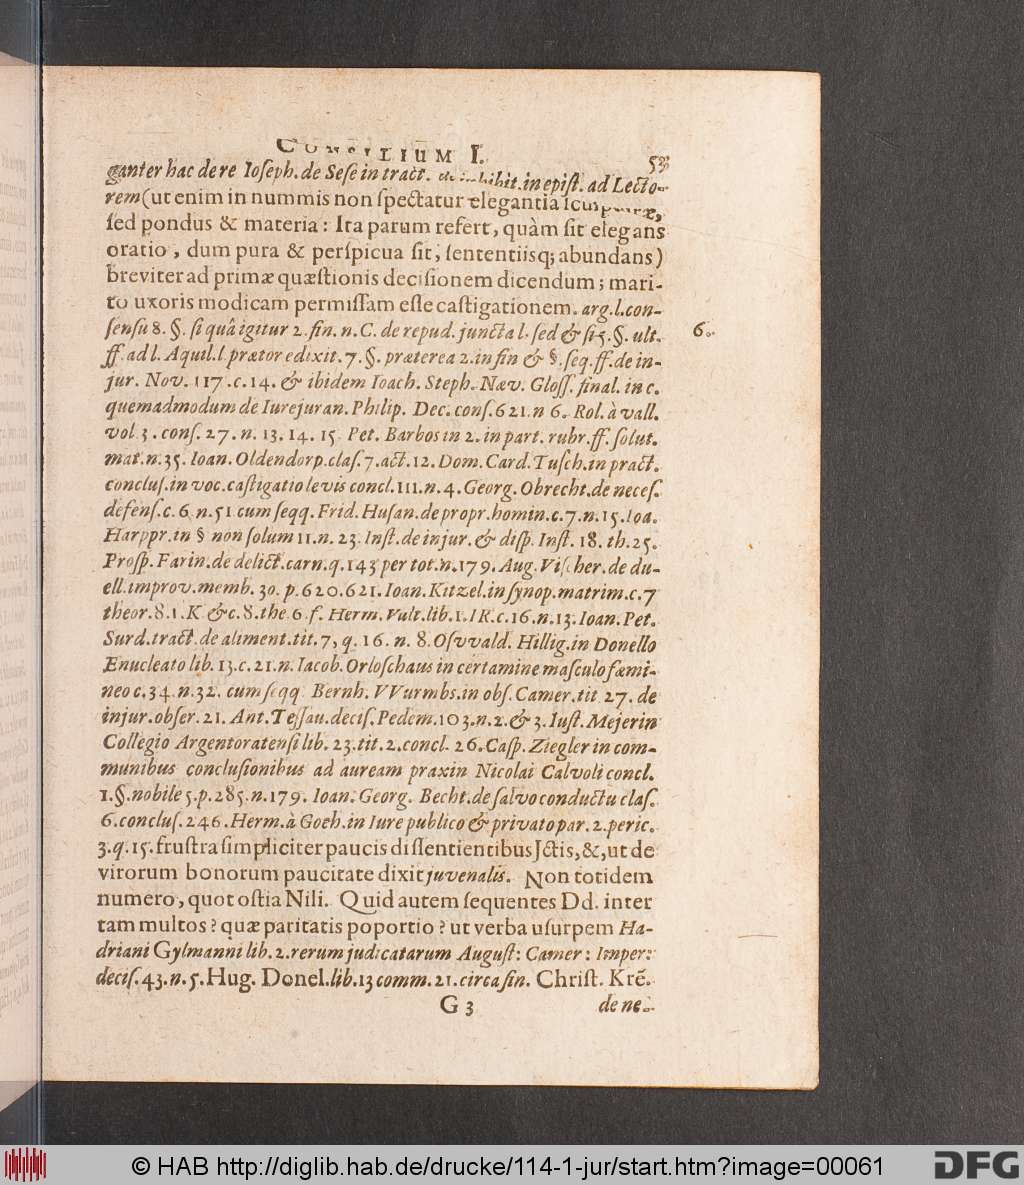 CONSILIUM I. 53
ganter hac de re Ioſeph. de Seſe in tract. de inhibit. in epiſt. ad Lecto-
rem (ut enim in nummis non ſpectatur elegantia
ſed pondus & materia: Ita parum refert, quàm ſit elegans
oratio, dum pura & perſpicua ſit, ſententiisq; abundans)
breviter ad primæ quæſtionis deciſionem dicendum; mari-
to uxoris modicam permiſſam eſſe caſtigationem. arg. l. con-
ſenſu 8. §. ſi quâ igitur 2. fin. n. C. de repud. juncta l. ſed & ſi 5. §. ult. 6.
ff. ad l. Aquil. l prætor edixit. 7. §. præterea 2. in fin & §. ſeq. ff. de in-
jur. Nov. 117. c. 14. & ibidem Ioach. Steph. Næv. Gloſſ. final. in c.
quemadmodum de Iurejuran. Philip. Dec. conſ. 621. n 6. Rol. à vall.
vol 3. conſ. 27. n. 13. 14. 15 Pet. Barbos in 2. in part. rubr. ff. ſolut.
mat. n. 35. Ioan. Oldendorp. claſ. 7. act. 12. Dom. Card. Tuſch. in pract.
concluſ. in voc. caſtigatio levis concl. 111. n. 4. Georg. Obrecht. de neceſ.
defenſ. c. 6. n. 51 cum ſeqq. Frid. Huſan. de propr. homin. c. 7. n. 15. Ioa.
Harppr. in § non ſolum 11. n. 23. Inſt. de injur. & diſp. Inſt. 18. th. 25.
Proſp. Farin. de delict. carn. q. 143 per tot. n. 179. Aug. Viſcher. de du-
ell. improv. memb. 30. p. 620. 621. Ioan. Kitzel. in ſynop. matrim. c. 7
theor. 8. 1. K &c. 8. the 6. f. Herm. Vult. lib. 1. IR. c. 16. n. 13. Ioan. Pet.
Surd. tract. de aliment. tit. 7, q. 16. n. 8. Oſvvald. Hillig. in Donello
Enucleato lib. 13. c. 21. n. Iacob. Orloſchaus in certamine maſculo fœmi-
neo c. 34. n. 32. cum ſeqq Bernh. VVurmbs. in obſ. Camer. tit 27. de
injur. obſer. 21. Ant. Teſſau. deciſ. Pedem. 103. n. 2. & 3. Iuſt. Mejer in
Collegio Argentoratenſi lib. 23. tit. 2. concl. 26. Caſp. Ziegler in com-
munibus concluſionibus ad auream praxin Nicolai Calvoli concl.
1. §. nobile 5. p. 285. n. 179. Ioan. Georg. Becht. de ſalvo conductu claſ.
6. concluſ. 246. Herm. à Goeh. in Iure publico & privato par. 2. peric.
3. q. 15. fruſtra ſimpliciter paucis diſſentientibus Jctis, &, ut de
virorum bonorum paucitate dixit juvenalis. Non totidem
numero, quot oſtia Nili. Quid autem ſequentes Dd. inter
tam multos? quæ paritatis poportio? ut verba uſurpem Ha-
driani Gylmanni lib. 2. rerum judicatarum Auguſt: Camer: Imper:
deciſ. 43. n. 5. Hug. Donel. lib. 13 comm. 21. circa fin. Chriſt. Krē.
G 3 de ne-
© HAB http://diglib.hab.de/drucke/114-1-jur/start.htm?image=00061 DFG